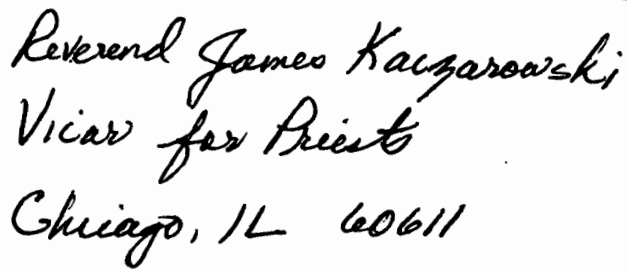 Reverend James Kaczarowski,
Vicar for Priests
Chicago, IL 60611